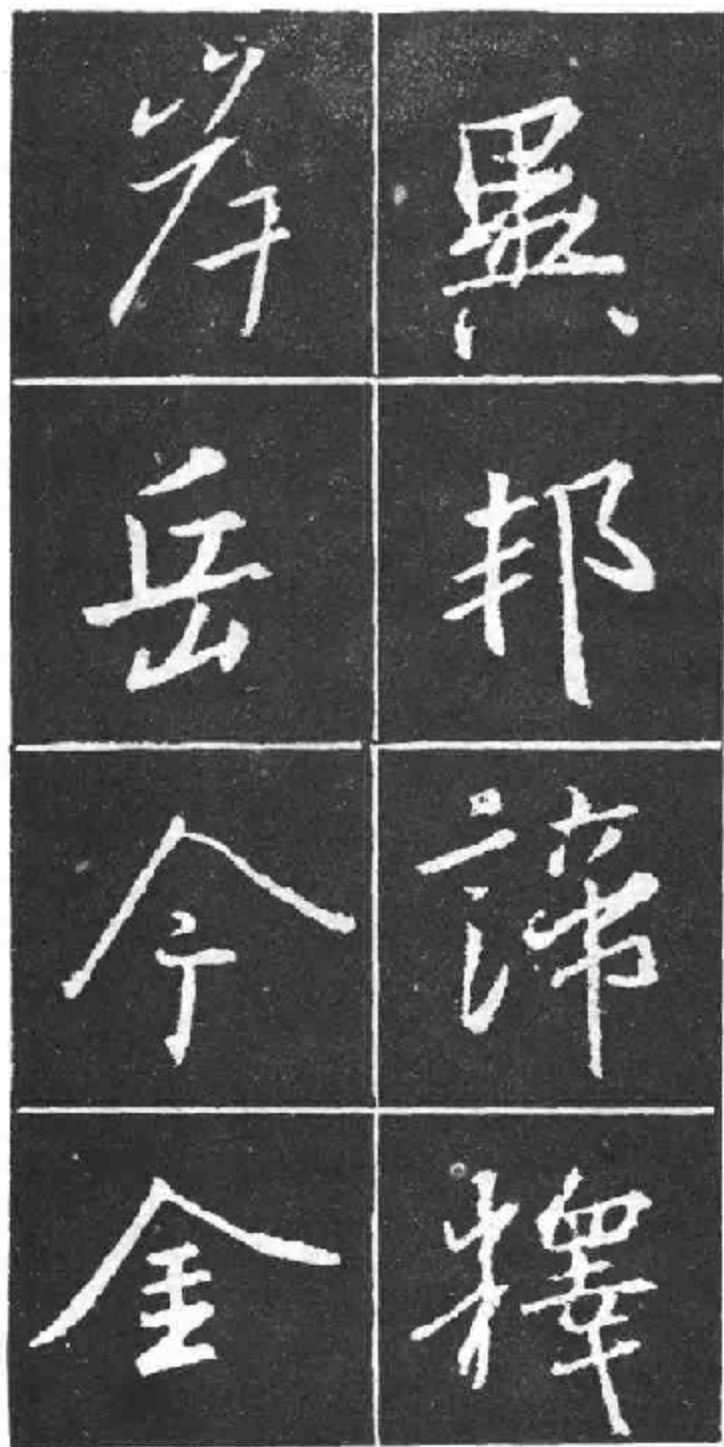 異邦諦釋
岸岳今金